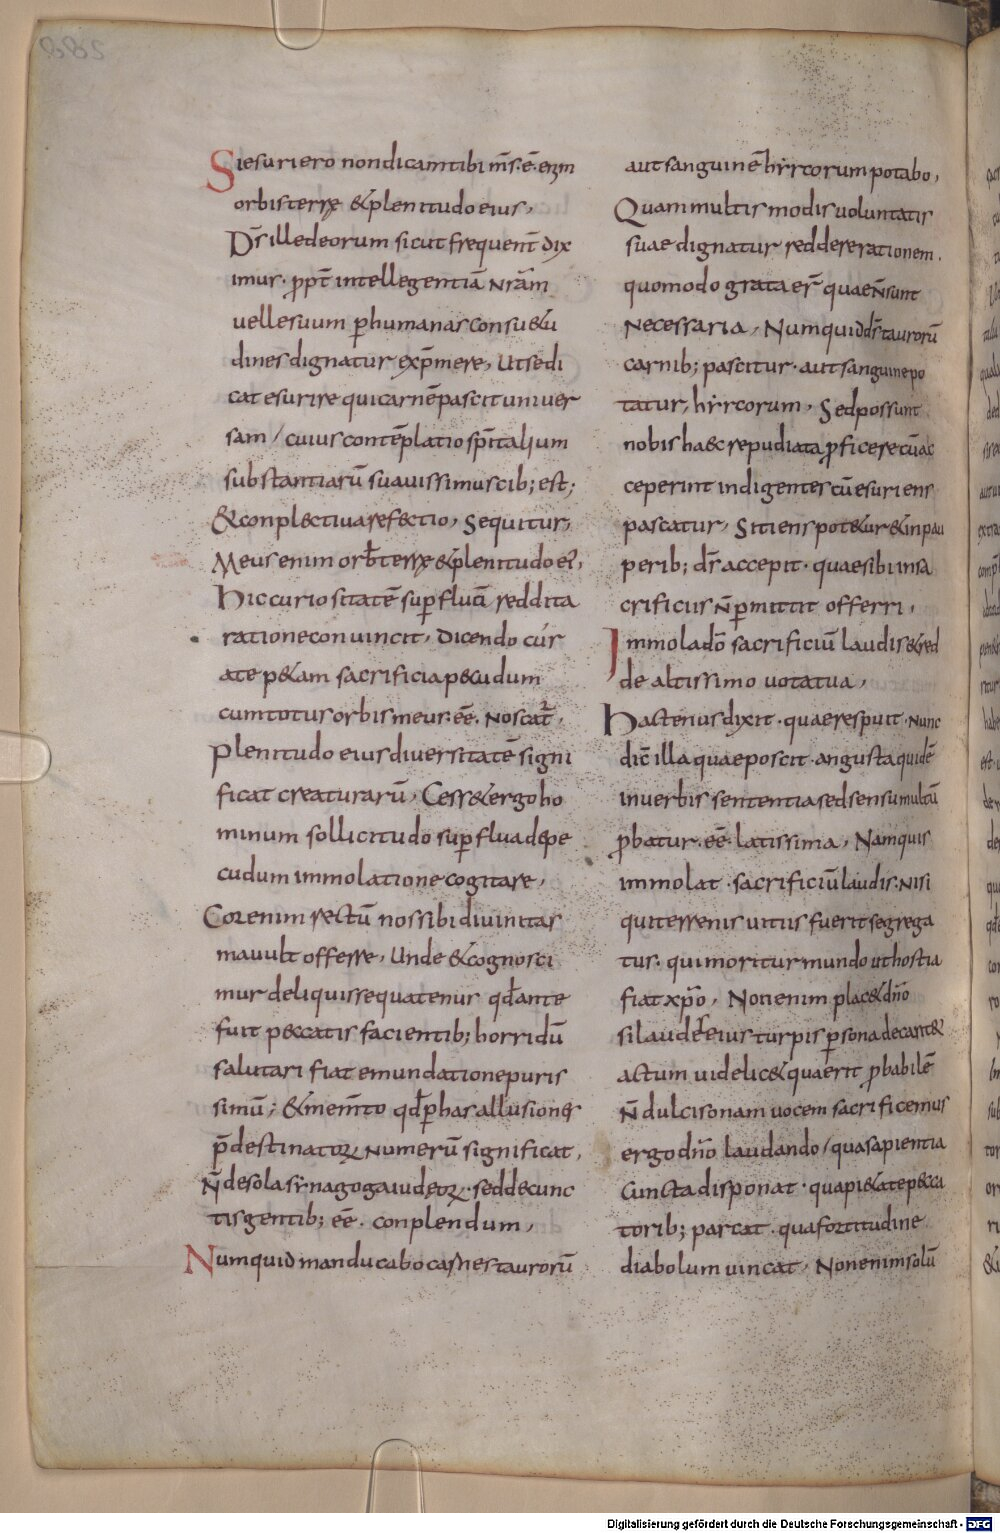 Siesuriero nondicamtibi m̄s·ē·enim
orbisterrę &plenitudo eius,
D̄s illedeorum sicut frequent̄ dix
imus· ꝓpt̄ intellegentiā nr̄am
uellesuum ꝑhumanas consu&u
dines dignatur exp̄mere, Utsedi
cat esurire quicarnē pascit uniuer
sam / cuius contēplatio sp̄italium
substantiarū suauissimus cib; est;
&conplectiua refectio, Sequitur,
Meus enim orb̄ terrę &plenitudo ei,
Hic curiositatē suꝑfluā reddita
ratione conuincit, dicendo cur
ate p&am sacrificia p&udum
cum totus orbis meus·eē· noscat̄,
Plenitudo eius diuersitatē signi
ficat creaturarū, Cess& ergo ho
minum sollicitudo suꝑflua depe
cudum immolatione cogitare,
Cor enim rectū nos sibi diuinitas
mauult offerre, Unde &cognosci
mur deliquisse quatenus qd̄ ante
fuit peccatis facientib; horridū
salutari fiat emundatione puris
simū; &mem̄to qd̄ ꝑhas allusiones
p̄destinatoꝝ numerū significat,
n̄ desola synagoga iudęoꝝ· sed de cunc
tis gentib; eē· conplendum,
Numquid manducabo carnes taurorū
aut sanguinē hyrcorum potabo,
Quam multis modis uoluntatis
suae dignatur reddere rationem.
quomodo grata er̄ quae n̄ sunt
necessaria, Numquid d̄s taurorū
carnib; pascitur· aut sanguine po
tatur, hyrcorum, Sed possunt
nobis haec repudiata ꝓficere cū ac
ceperint indigentes cū esuriens
pascatur, Sitiens pot&ur & in pau
perib; d̄s accepit· quae sibi in sa
crificiis n̄ ꝑmittit offerri,
Immola dō sacrificiū laudis &red
de altissimo uota tua,
Hactenus dixit· quae respuit· Nunc
dic̄ illa quae poscit· angusta quidē
in uerbis sententia sed sensu multū
ꝓbatur·eē· latissima, Nam quis
immolat· sacrificiū laudis· nisi
qui terrenis uitiis fuerit segrega
tus· qui moritur mundo ut hostia
fiat xp̄o, Non enim plac& dn̄o
si laudes eius turpis ꝑsona decant&
actum uidelic& quaerit ꝓbabilē
n̄ dulcisonam uocem sacrificemus
ergo dn̄o laudando / qua sapientia
cuncta disponat· qua pi&ate p&ca
torib; parcat· qua fortitudine
diabolum uincat, Non enim solū
Digitalisierung gefördert durch die Deutsche Forschungsgemeinschaft - DFG